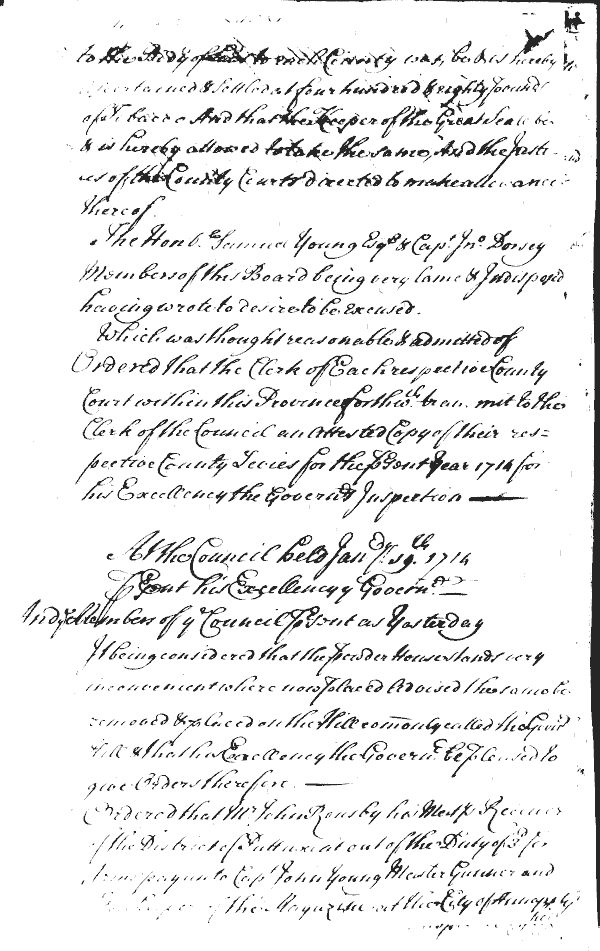 to the Body of to each County was, be & is hereby
ascertained & Settled at four hundred & eighty pounds
of Tobacco And that the Keeper of the Great Seale be
& is hereby allowed to take the same, And the Justi-
ces of the County Courts directed to make allowance
thereof
The Honble. Samuel Young Esqr. & Capt. Jno. Dorsey
Members of this Board being very lame & Indisposed
having wrote to desire to be Excused.
Which was thought reasonable & admitted of
Ordered that the Clerk of Each respective County
Court within this Province forthwth. transmit to the
Clerk of the Council an attested Copy of their res=
pective County Levies for the psent Year 1714 for
his Excellency the Governrs Inspection
At the Council held Janry. 19th. 1714
Psent his Excellency ye Governr.
And ye Members of ye Council Psent as Yesterday
It being considered that the Powder House stands very
inconvenient where now placed Advised the same be
removed & placed on the Hill commonly called the Govrs
Hill & that his Excellency the Governr. be pleased to
give Orders therefore.
Ordered that Mr. John Rousby his Matys Receiver
of the District of Puttuxent out of the Duty of 3d for
Arms pay unto Capt. John Young Master Gunner and
Keeper of the Magazine at the City of Annapolis
his